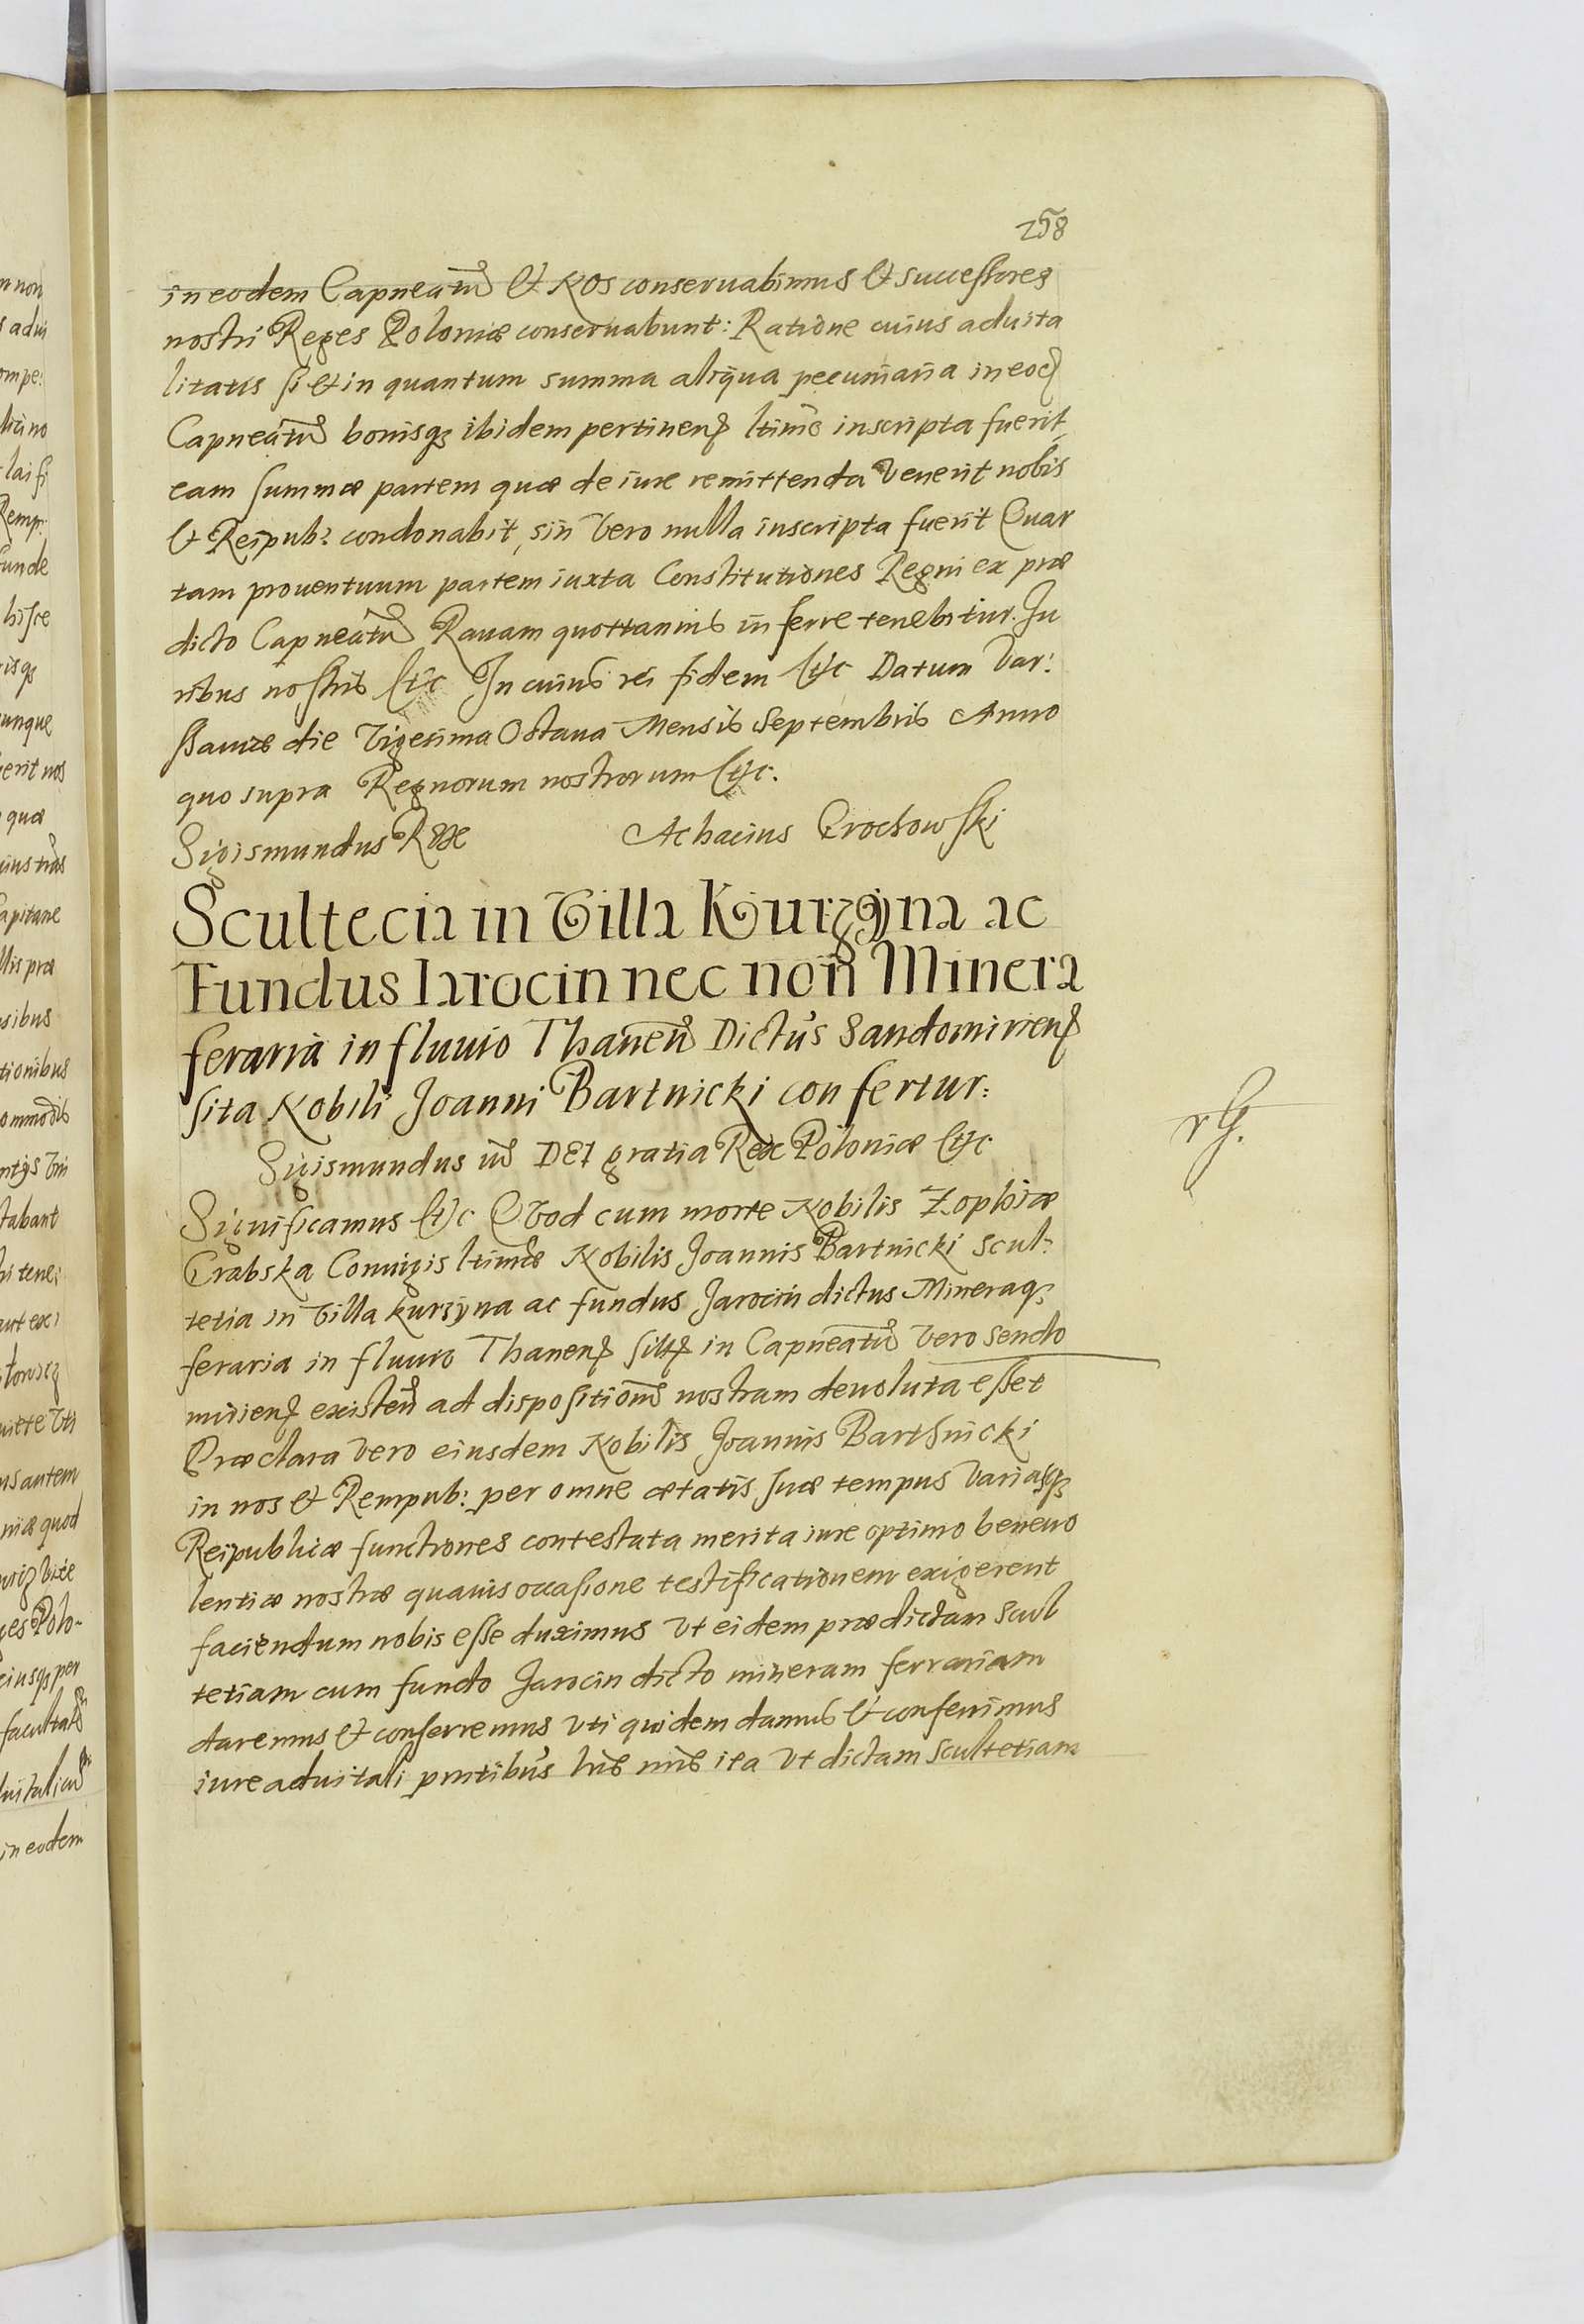 258
in eodem Capneatũ & Nos conseruabimus & successores
nostri Reges Poloniæ conseruabunt: Ratione cuius aduita
litatis si & in quantum summa aliqua pecuniaria in eod
Capneatũ bonisq3 ibidem pertinen ltime inscripta fuerit,
eam summæ partem quæ de iure remittenda venerit nobis
& Reipub: condonabit, sin vero nulla inscripta fuerit Quar
tam prouentuum partem iuxta Constitutiones Regni ex præ
dicto Capneatũ Rauam quottannis inferre tenebitur. Iu
ribus nostris &c In cuius rei fidem &c Datum Var:
ssauiæ die Vigesima Octaua Mensis Septembris Anno
quo supra Regnorum nostrorum &c.
Sigismundus Rex Achacius Grochowski
Scultecia in Villa Kurzyna ac
Fundus Iarocin nec non Minera
feraria in fluuio Thanen Dictus Sandomirien
sita Nobili Joanni Bartnicki confertur:
rG.
Sigismundus DEI gratia Rex Poloniæ &c
Significamus &c Quod cum morte Nobilis Zophiæ
Grabska Coniugis ltimæ Nobilis Joannis Bartnicki Scul:
tetia in Villa kurzyna ac fundus Jarocin dictus Mineraq3
feraria in fluuio Thanen in Capneatũ vero Sendo
mirien existen ad dispositionẽ nostram deuoluta esset
Præclara vero eiusdem Nobilis Joannis Barthnicki
in nos & Rempub: per omne ætatis suæ tempus variasq3
Reipublicæ functiones contestata merita iure optimo beneuo
lentiæ nostræ quauis occasione testificationem exigerent
faciendum nobis esse duximus Vt eidem prædictam Scul
tetiam cum fundo Jarocin dicto mineram ferrariam
daremus & conferremus vti quidem damus & conferimus
iure aduitali pntibus lris nris ita Vt dictam Scultetiam